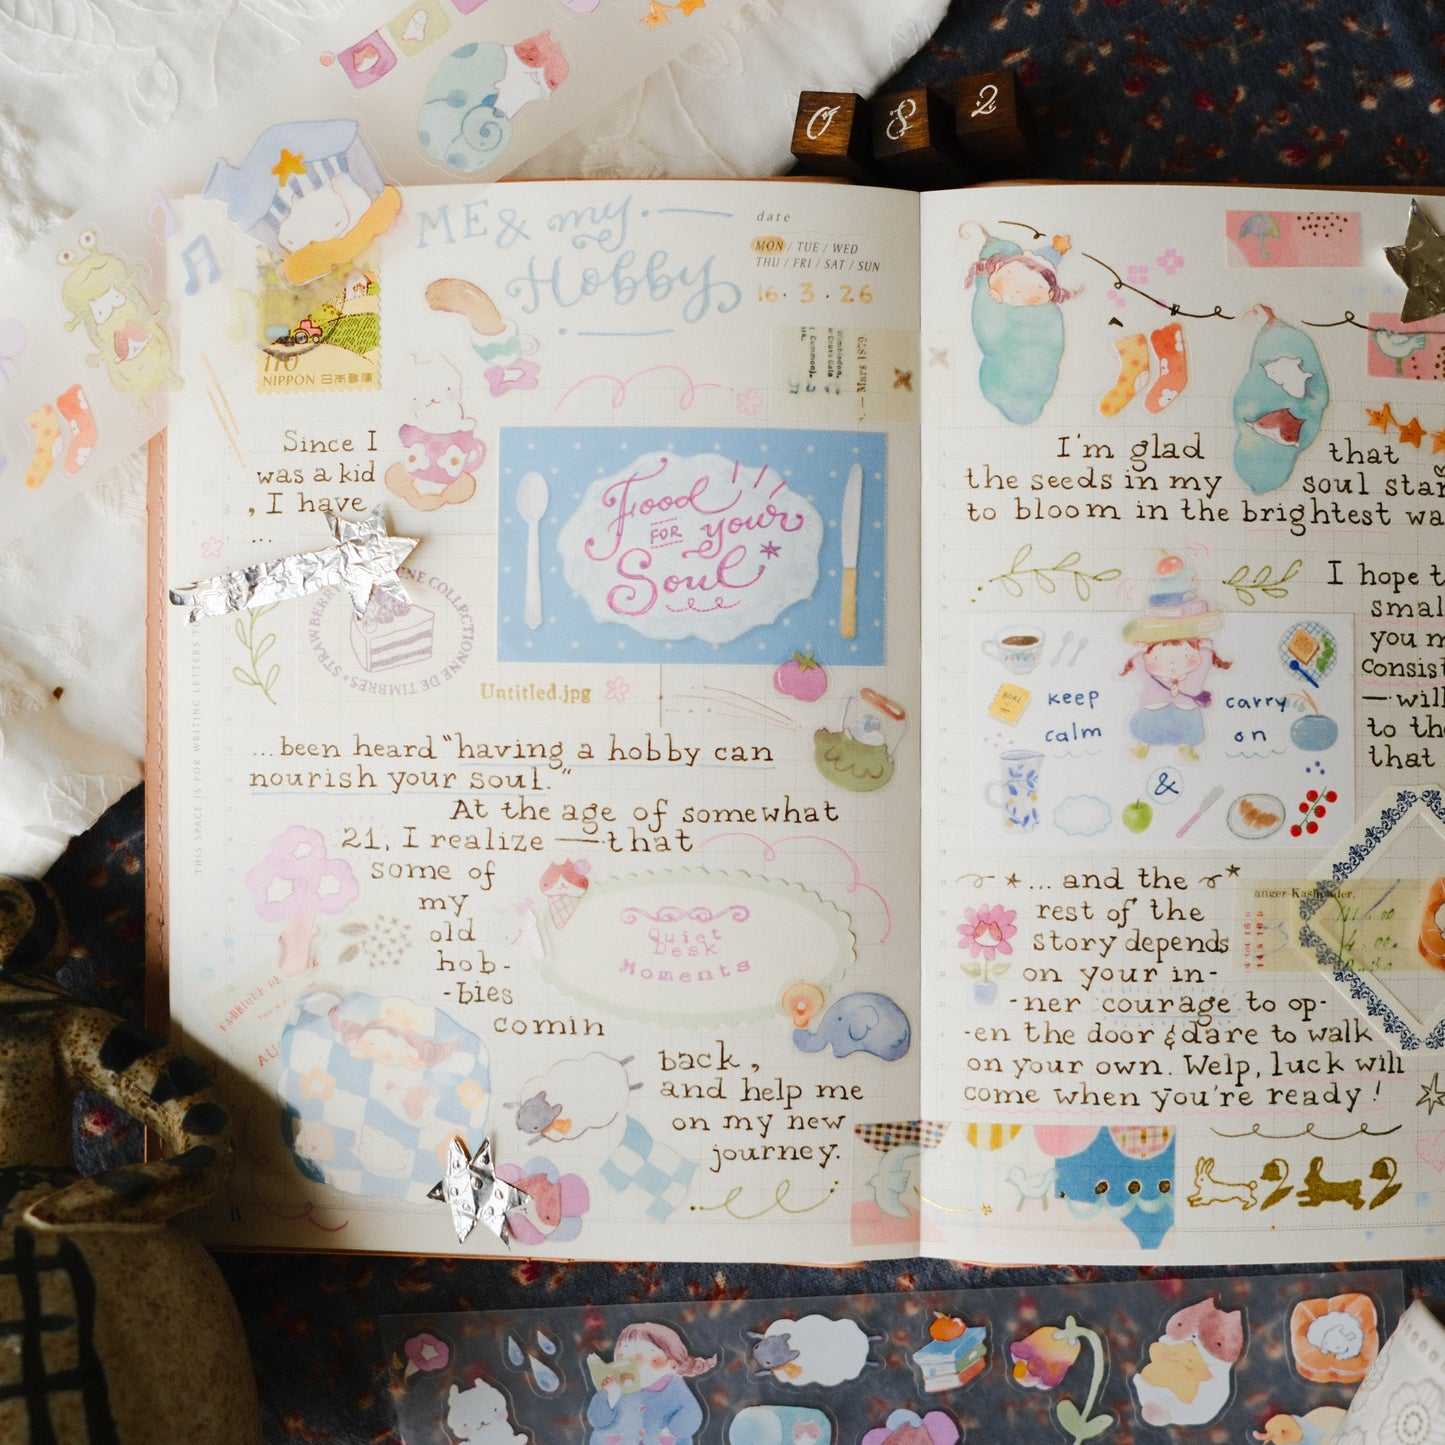 0 8 2
ME & my
Hobby
date
MON / TUE / WED
THU / FRI / SAT / SUN
16 . 3 . 26
110
NIPPON 日本郵便
Since I
was a kid
, I have
...
Food
FOR your
Soul
STRAWBERRY
NE COLLECTION
NE DE TIMBRES
Untitled.jpg
...been heard "having a hobby can
nourish your soul."
At the age of somewhat
21, I realize — that
some of
my
old
hob-
-bies
comin
back,
and help me
on my new
journey.
Quiet
Desk
Moments
THIS SPACE IS FOR WRITING LETTERS
I'm glad that
the seeds in my soul star
to bloom in the brightest wa
I hope t
smal
you m
consist
— will
to the
that
keep
calm
&
carry
on
★... and the
rest of the
story depends
on your in-
-ner courage to op-
-en the door & dare to walk
on your own. Welp, luck will
come when you're ready!
anger Kashender.